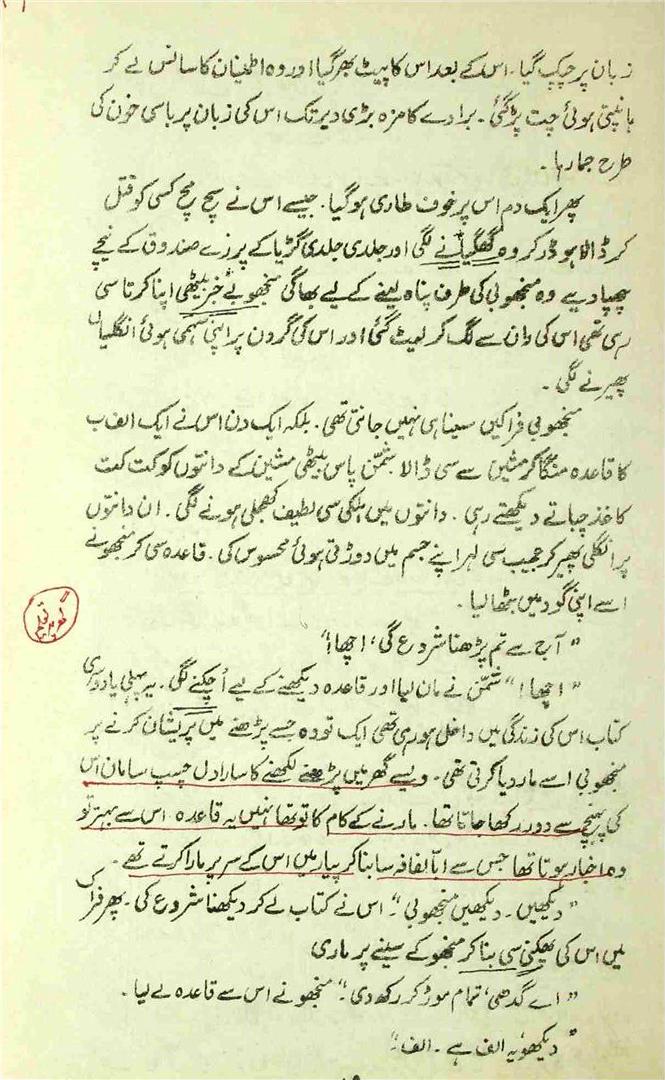 زبان پر چپک گیا۔ اس کے بعد اس کا پیٹ بھر گیا اور وہ اطمینان کا سانس لے کر
ہانپتی ہوئی چت پڑ گئی۔ برادے کا مزہ بڑی دیر تک اس کی زبان پر باسی خون کی
طرح جما رہا۔
پھر ایک دم اس پر خوف طاری ہو گیا۔ جیسے اس نے سچ مچ کسی کو قتل
کر ڈالا ہو ڈر کر وہ گھگیانے لگی اور جلدی جلدی گڑیا کے پرزے صندوق کے نیچے
چھپا دیے وہ منجھو بی کی طرف پناہ لینے کے لیے بھاگی منجھو بے خبر بیٹھی اپنا کرتا سی
رہی تھی اس کی ران سے لگ کر لیٹ گئی اور اس کی گردن پر اپنی سہمی ہوئی انگلیاں
پھیرنے لگی۔
منجھو بی فراکیں سینا ہی نہیں جانتی تھی۔ بلکہ ایک دن اس نے ایک الف ب
کا قاعدہ منگا کر مشین سے سی ڈالا شمّن پاس بیٹھی مشین کے دانتوں کو کٹ کٹ
کاغذ چباتے دیکھتے رہی۔ دانتوں میں ہلکی سی لطیف کھجلی ہونے لگی۔ ان دانتوں
پر انگلی پھیر کر عجیب سی لہر اپنے جسم میں دوڑتی ہوئی محسوس کی۔ قاعدہ سی کر منجھو نے
اسے اپنی گود میں بٹھا لیا۔
"آج سے تم پڑھنا شروع کی گی، اچھا!"
"اچھا!" شمّن نے مان لیا اور قاعدہ دیکھنے کے لیے اُچکنے لگی۔ یہ پہلی یا دوسری
کتاب اس کی زندگی میں داخل ہو رہی تھی ایک تو وہ جسے پڑھنے میں پریشان کرنے پر
منجھو بی اسے مار دیا کرتی تھی۔ ویسے گھر میں پڑھنے لکھنے کا سارا دل چسپ سامان اس
کی پہنچ سے دور رکھا جاتا تھا۔ مارنے کے کام کا تو تھا نہیں یہ قاعدہ۔ اس سے بہتر تو
وہ اخبار ہوتا تھا جس سے ابّا لفافہ سا بنا کر پیار میں اس کے سر پر مارا کرتے تھے۔
"دیکھیں۔ دیکھیں منجھو بی"۔ اس نے کتاب لے کر دیکھنا شروع کی۔ پھر فراک
میں اس کی پھکنی سی بنا کر منجھو کے سینے پر ماری
"اے گدھی، تمام موڑ کر رکھ دی۔" منجھو نے اس سے قاعدہ لے لیا۔
"دیکھو یہ الف ہے۔ الف۔"